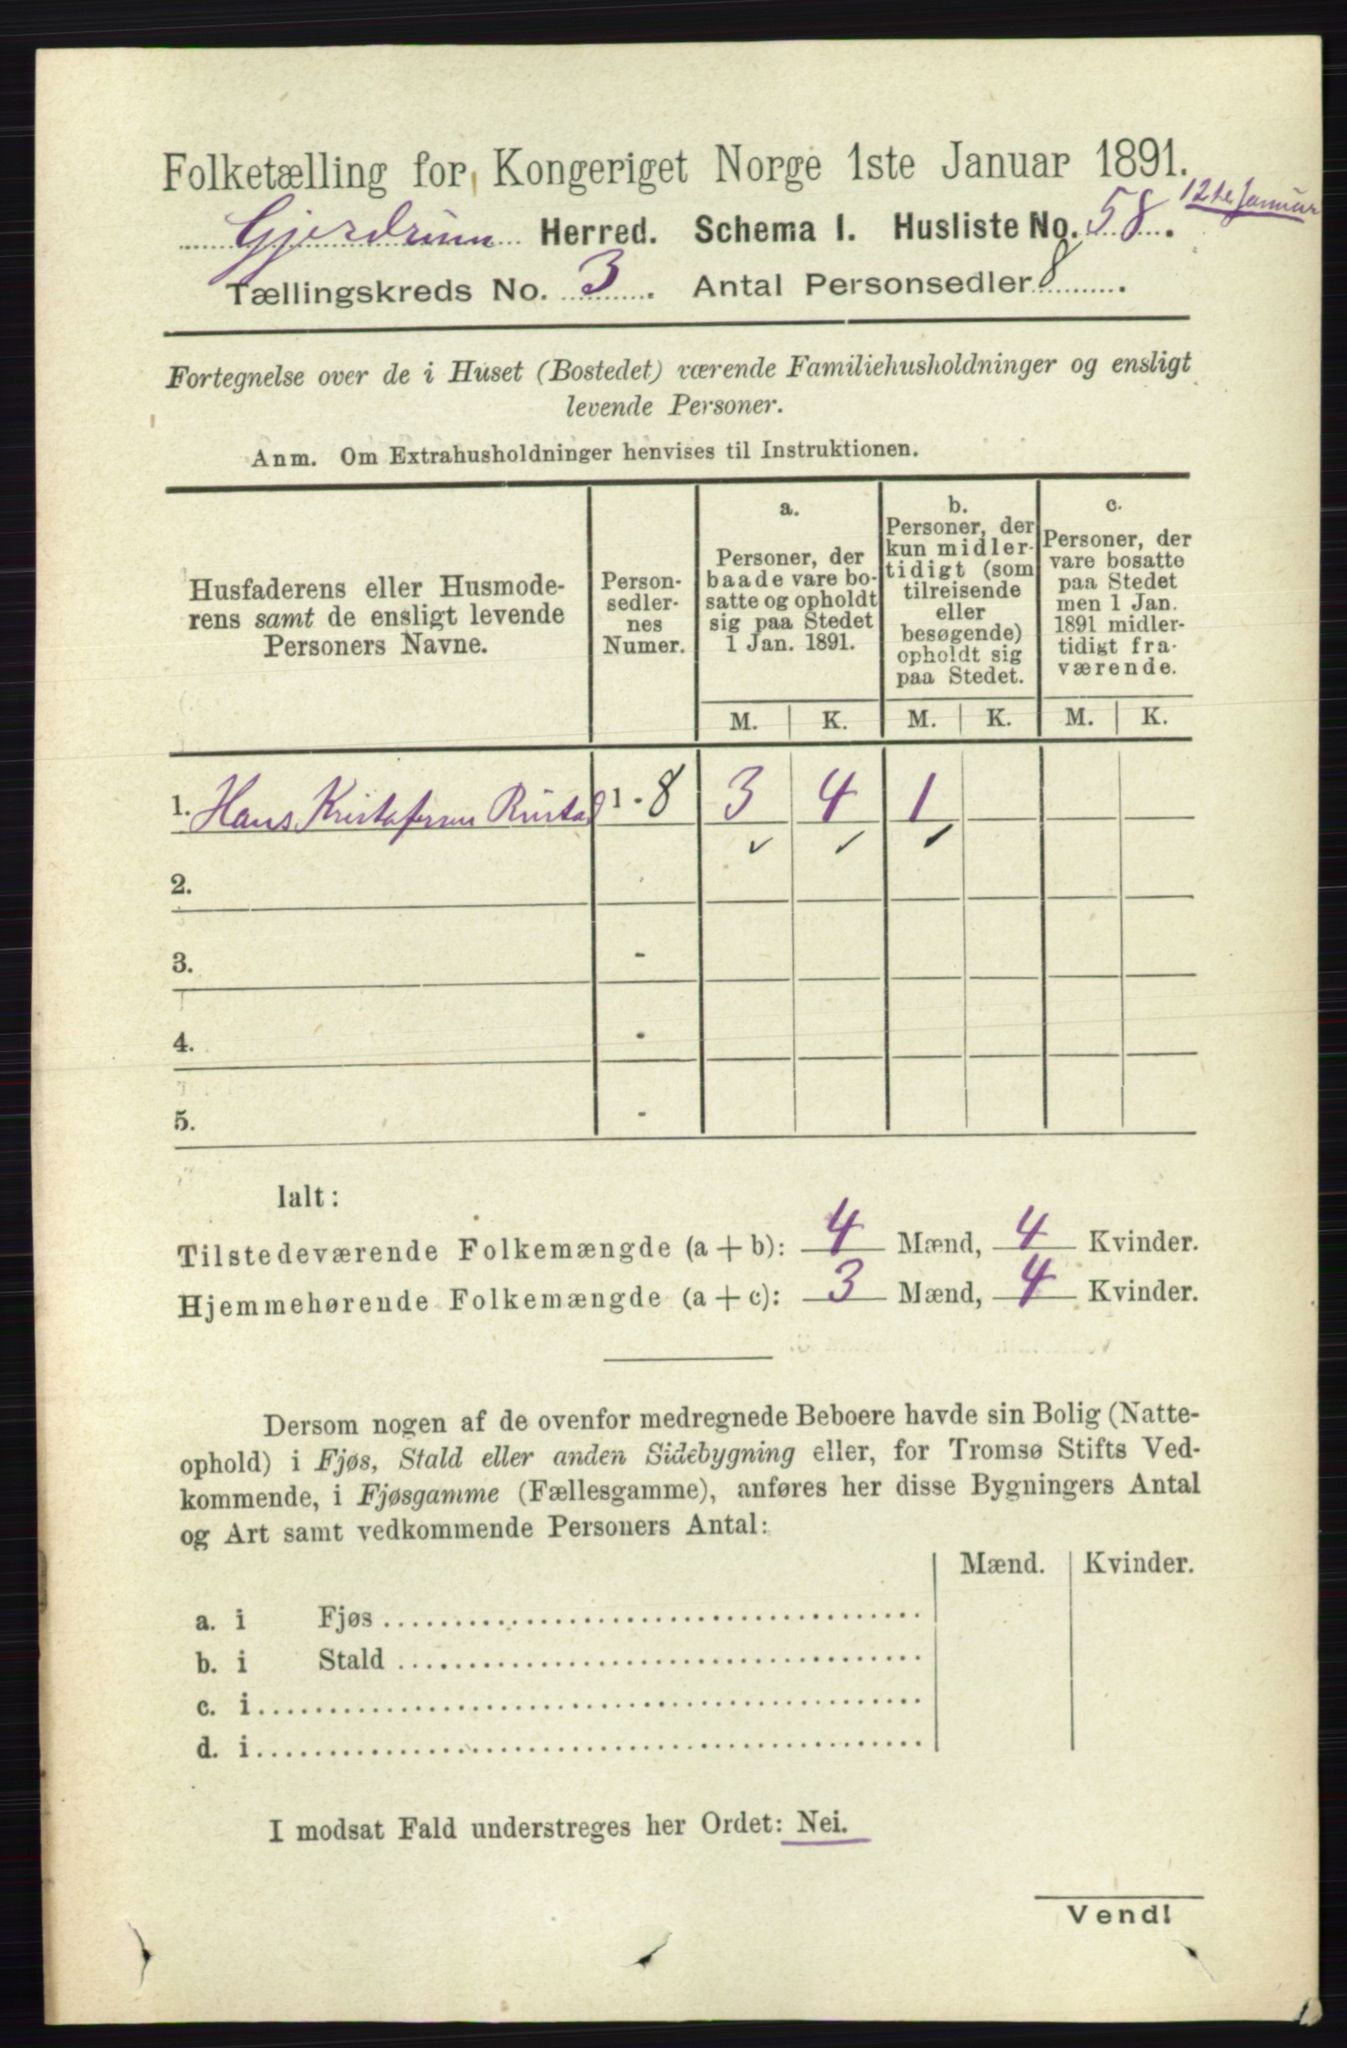 Folketælling for Kongeriget Norge 1ste Januar 1891.
12te Januar
Gjerdrum Herred. Schema I. Husliste No. 58.
Tællingskreds No. 3. Antal Personsedler 8.
Fortegnelse over de i Huset (Bostedet) værende Familiehusholdninger og ensligt
levende Personer.
Anm. Om Extrahusholdninger henvises til Instruktionen.
Husfaderens eller Husmode-
rens samt de ensligt levende
Personers Navne.
Person-
sedler-
nes
Numer.
a.
Personer, der
baade vare bo-
satte og opholdt
sig paa Stedet
1 Jan. 1891.
b.
Personer, der
kun midler-
tidigt (som
tilreisende
eller
besøgende)
opholdt sig
paa Stedet.
c.
Personer, der
vare bosatte
paa Stedet
men 1 Jan.
1891 midler-
tidigt fra-
værende.
M. K. M. K. M. K.
1. Hans Kristofersen Rustad 1 - 8 3 4 1
2.
3. -
4. -
5. -
Ialt:
Tilstedeværende Folkemængde (a + b): 4 Mænd, 4 Kvinder.
Hjemmehørende Folkemængde (a + c): 3 Mænd, 4 Kvinder.
Dersom nogen af de ovenfor medregnede Beboere havde sin Bolig (Natte-
ophold) i Fjøs, Stald eller anden Sidebygning eller, for Tromsø Stifts Ved-
kommende, i Fjøsgamme (Fællesgamme), anføres her disse Bygningers Antal
og Art samt vedkommende Personers Antal:
Mænd. Kvinder.
a. i Fjøs
b. i Stald
c. i
d. i
I modsat Fald understreges her Ordet: Nei.
Vend!